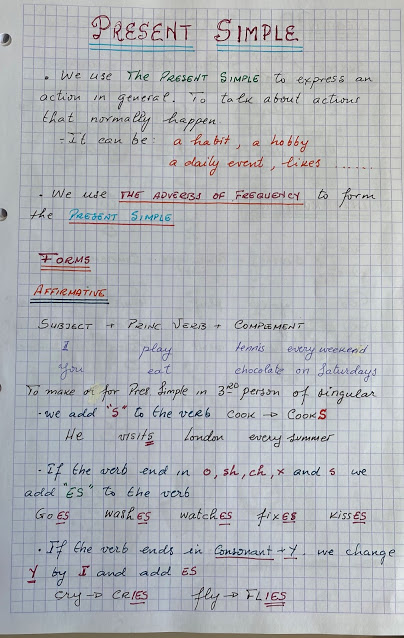 PRESENT SIMPLE
• We use THE PRESENT SIMPLE to express an
action in general. To talk about actions
that normally happen
- It can be: a habit, a hobby
a daily event, likes ......
• We use THE ADVERBS OF FREQUENCY to form
the PRESENT SIMPLE
FORMS
AFFIRMATIVE
SUBJECT + PRINC VERB + COMPLEMENT
I play tennis every weekend
You eat chocolate on Saturdays
To make for Pres. Simple in 3RD person of singular
- we add "S" to the verb COOK → COOKS
He VISITS London every summer
- If the verb end in o, sh, ch, x and s we
add "ES" to the verb
GOES WASHES WATCHES FIXES KISSES
• If the verb ends in CONSONANT + Y. we change
Y by I and add ES
cry → CRIES fly → FLIES